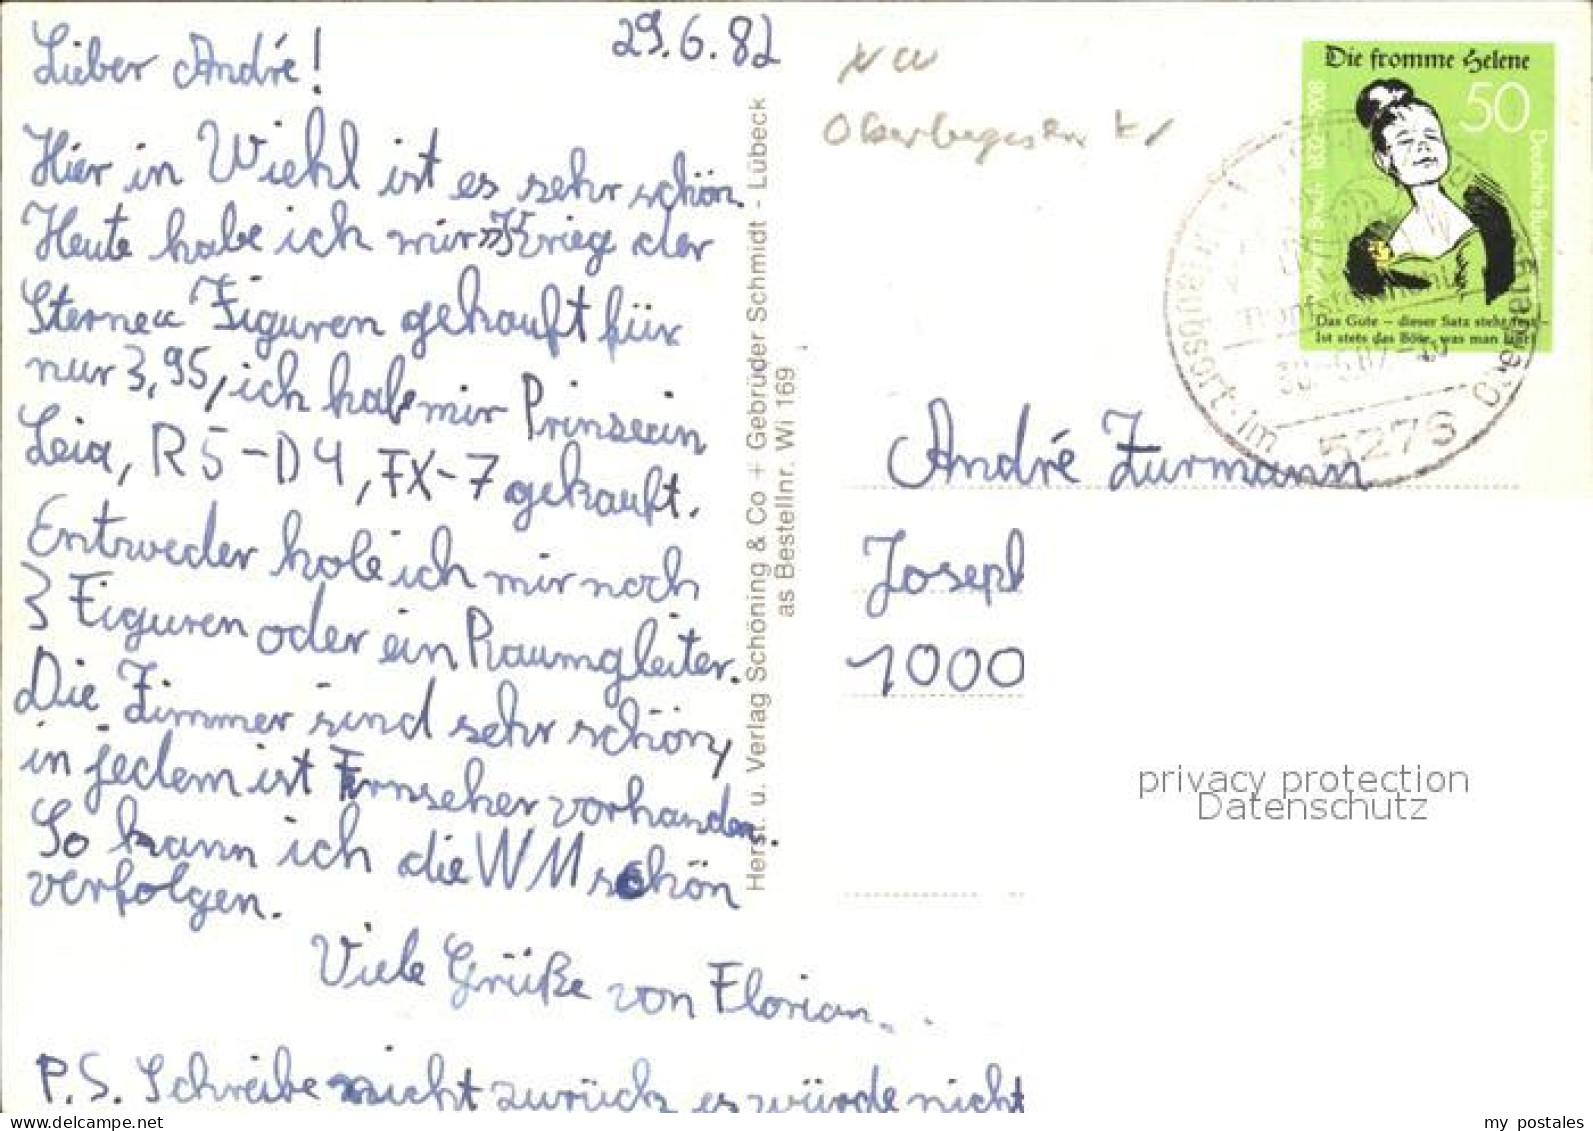 29.6.82
Lieber André!
Hier in Wiehl ist es sehr schön.
Heute habe ich mir »Krieg der
Sterne« Figuren gekauft für
nur 3,95, ich habe mir Prinsesin
Leia, R5-D4, FX-7 gekauft.
Entweder hole ich mir noch
3 Figuren oder ein Raumgleiter.
Die Zimmer sind sehr schön,
in jedem ist Fernseher vorhanden.
So kann ich die WM schön
verfolgen.
Viele Grüße von Florian.
P.S. Schreibe nicht zurück es würde nicht
Herst. u. Verlag Schöning & Co + Gebrüder Schmidt - Lübeck
as Bestellnr. Wi 169
NW
Die fromme Helene
50
Das Gute – dieser Satz steht fest –
Ist stets das Böse, was man läßt!
5276
André Zurmann
Joseph
1000
privacy protection
Datenschutz
www.delcampe.net
my_postales